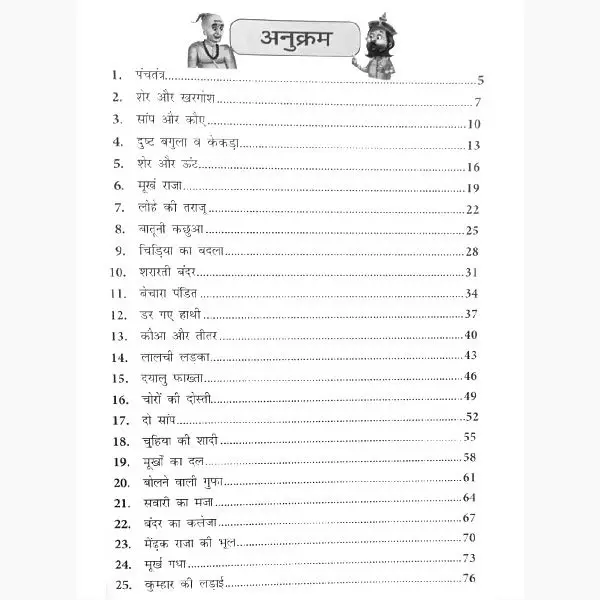 अनुक्रम
1. पंचतंत्र 5
2. शेर और खरगोश 7
3. सांप और कौए 10
4. दुष्ट बगुला व केकड़ा 13
5. शेर और ऊंट 16
6. मूर्ख राजा 19
7. लोहे की तराजू 22
8. बातूनी कछुआ 25
9. चिड़िया का बदला 28
10. शरारती बंदर 31
11. बेचारा पंडित 34
12. डर गए हाथी 37
13. कौआ और तीतर 40
14. लालची लड़का 43
15. दयालु फाख्ता 46
16. चोरों की दोस्ती 49
17. दो सांप 52
18. चुहिया की शादी 55
19. मूर्खों का दल 58
20. बोलने वाली गुफा 61
21. सवारी का मजा 64
22. बंदर का कलेजा 67
23. मेंढ़क राजा की भूल 70
24. मूर्ख गधा 73
25. कुम्हार की लड़ाई 76